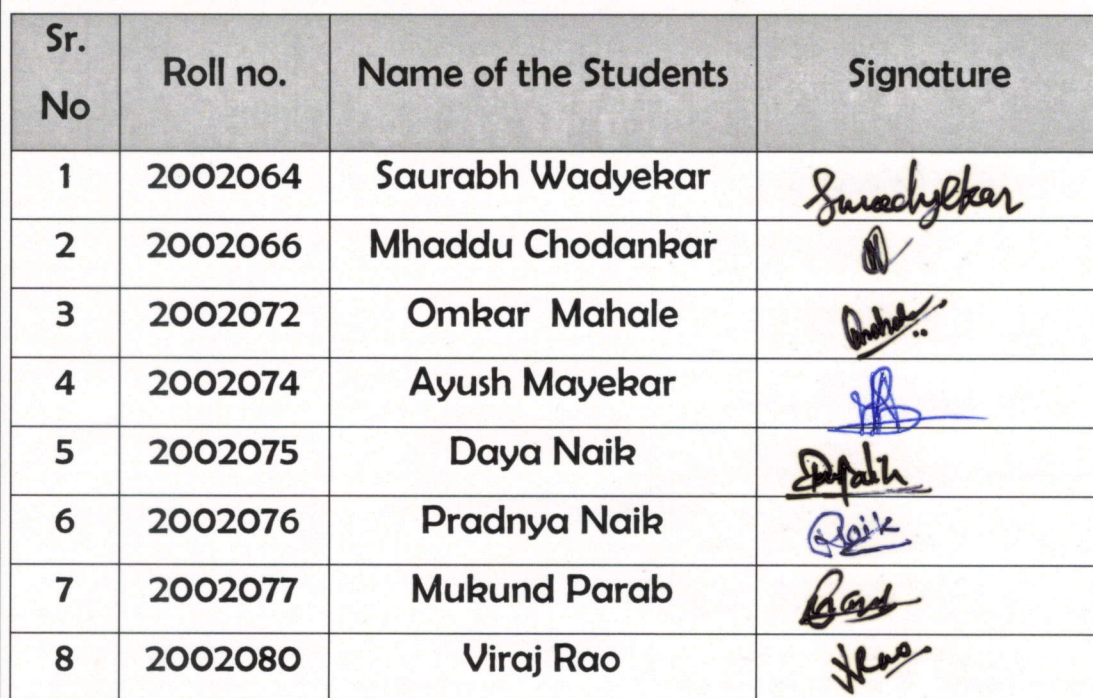 Sr. No Roll no. Name of the Students Signature
1 2002064 Saurabh Wadyekar Swadyekar
2 2002066 Mhaddu Chodankar
3 2002072 Omkar Mahale
4 2002074 Ayush Mayekar
5 2002075 Daya Naik
6 2002076 Pradnya Naik PNaik
7 2002077 Mukund Parab
8 2002080 Viraj Rao VRao